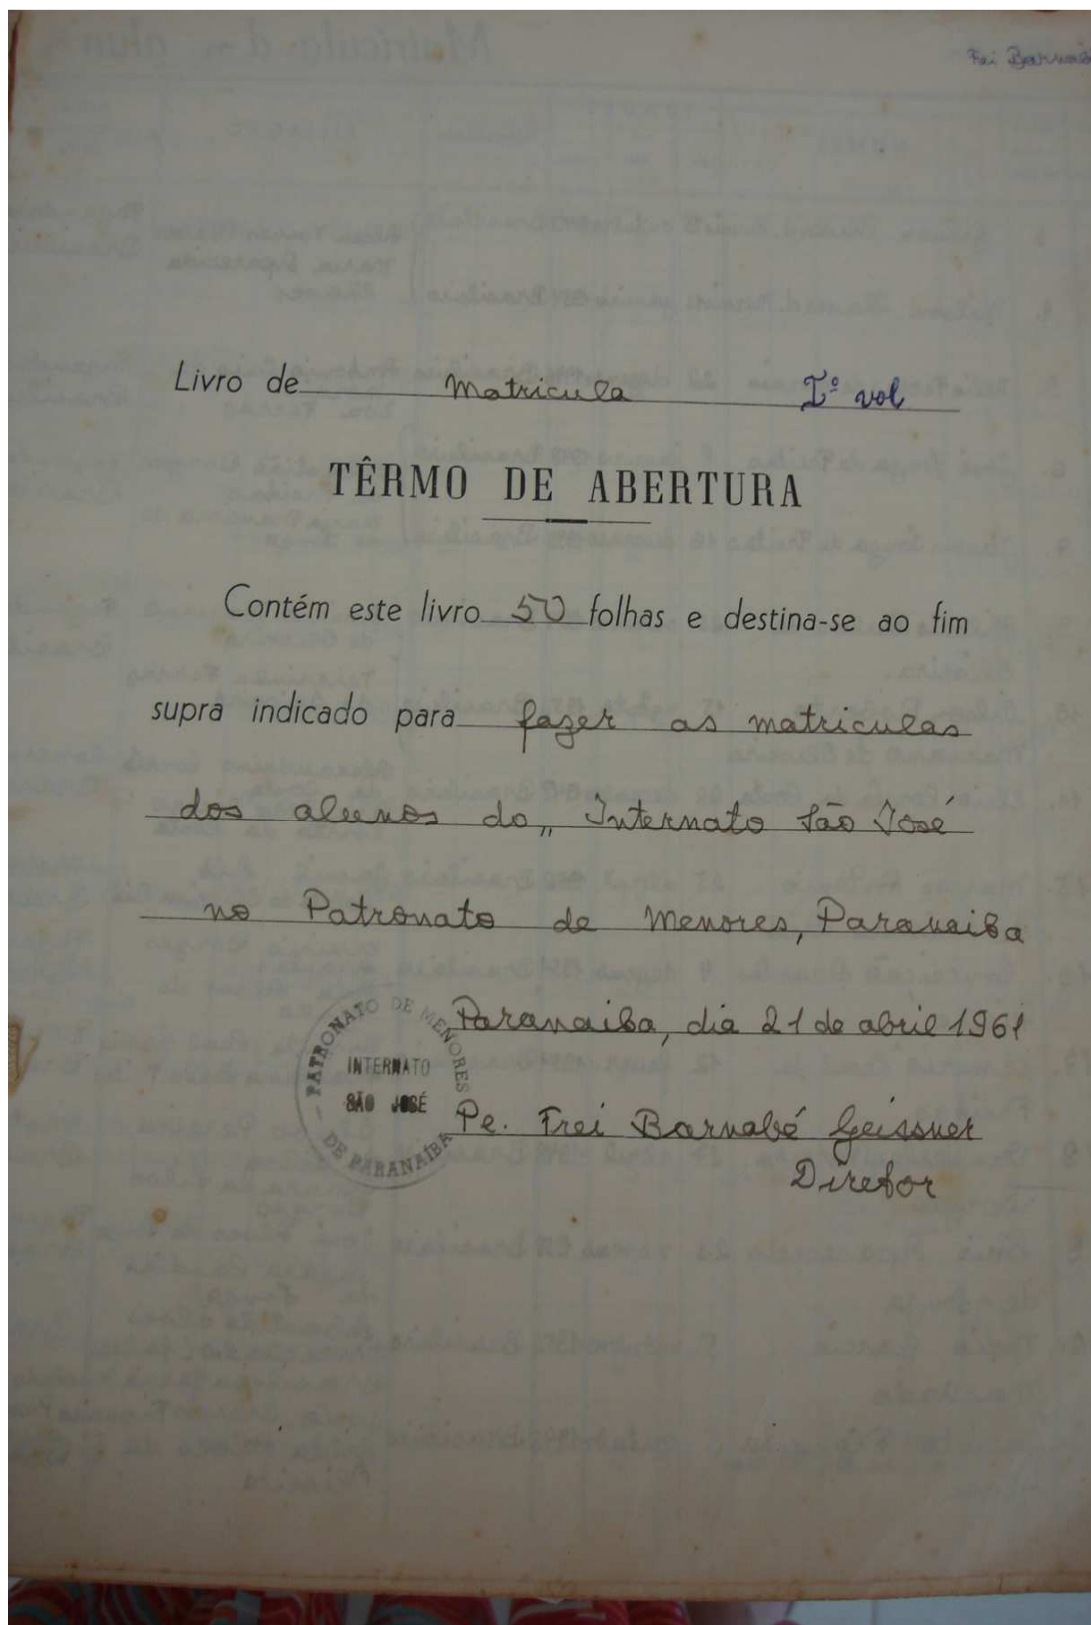 Frei Barnab
Livro de Matricula Iº vol
TÊRMO DE ABERTURA
Contém este livro 50 folhas e destina-se ao fim
supra indicado para fazer as matriculas
dos alunos do „ Internato São José
no Patronato de Menores, Paranaiba
Paranaiba, dia 21 de abril 1961
PATRONATO DE MENORES
INTERNATO
SÃO JOSÉ
DE PARANAÍBA
Pe. Frei Barnabé Geissner
Diretor